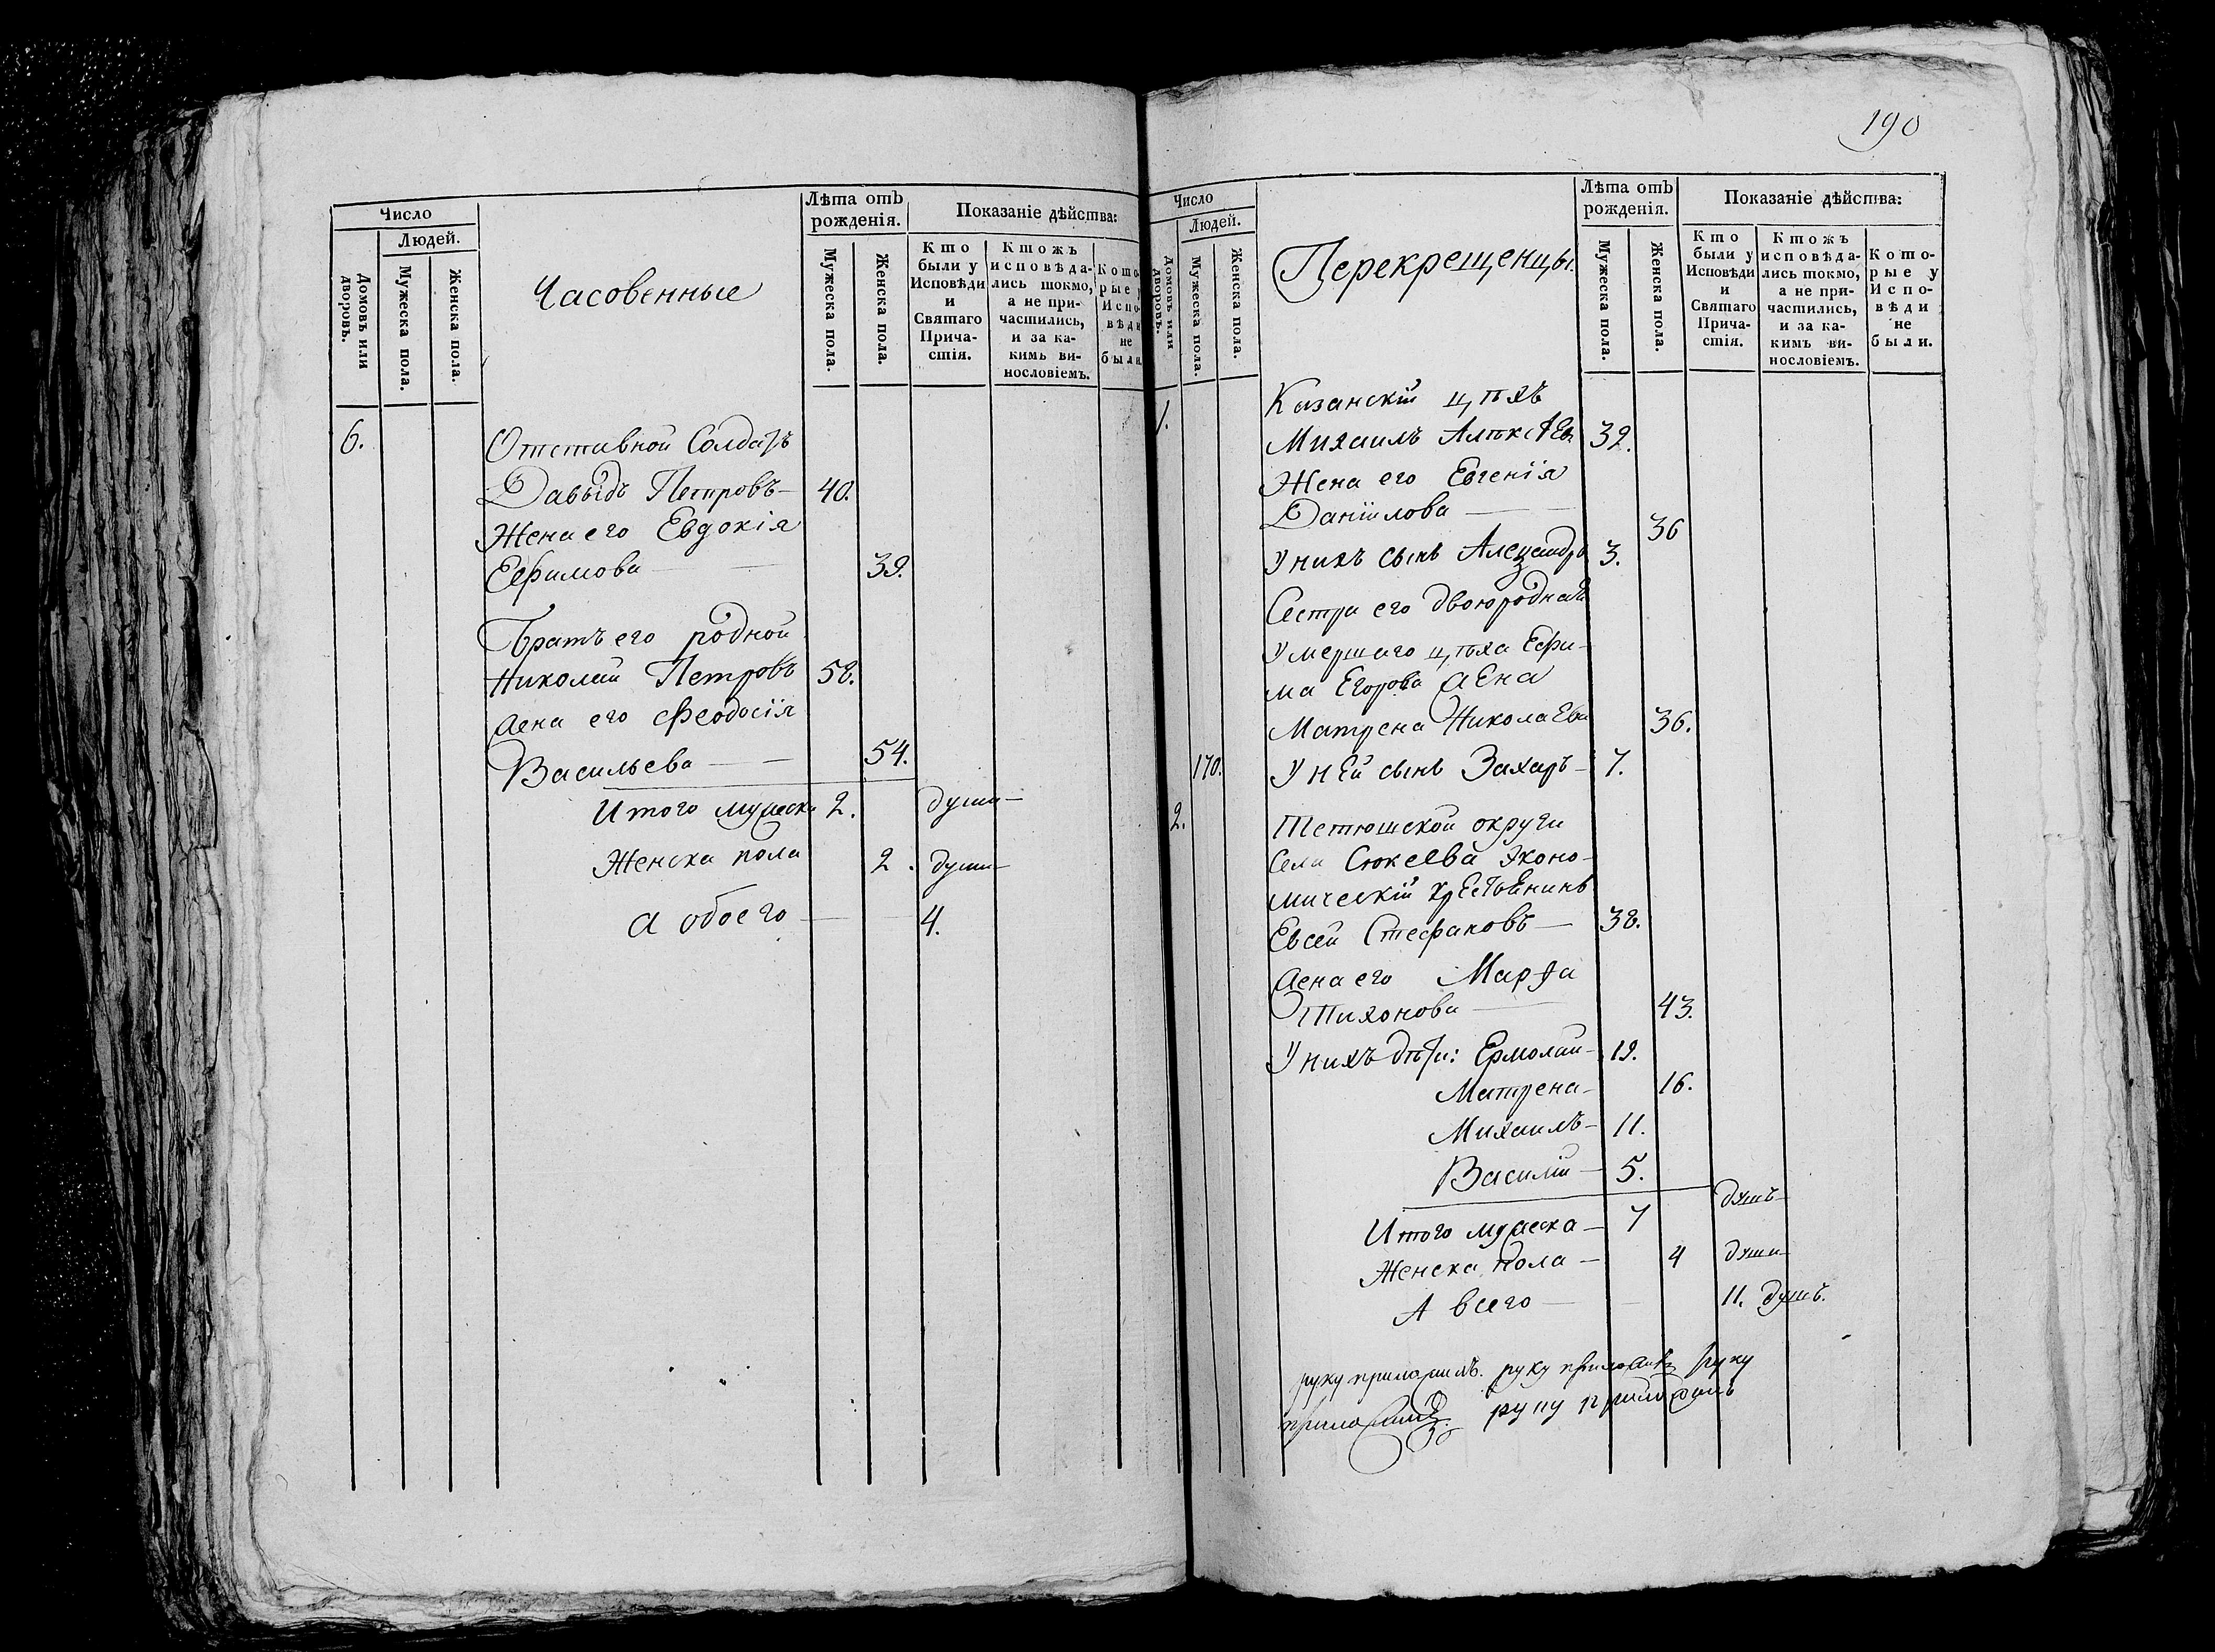 190
Число
Людей.
Домовъ или дворовъ.
Мужеска пола.
Женска пола.
Часовенные
Лѣта отъ рожденія.
Мужеска пола.
Женска пола.
Показаніе дѣйства:
Кто были у Исповѣди и Святаго Причастія.
Ктожъ исповѣдались токмо, а не причастились, и за какимъ винословіемъ.
Которые у Исповѣди не были.
6. Отставной Солдатъ
Давыдъ Петровъ 40.
Жена его Евдокія
Ефимова 39.
Братъ его родной
Николай Петровъ 58.
Жена его Феодосія
Васильева 54.
Итого мужеска 2. души
Женска пола 2. души
А обоего 4.
Число
Людей.
Домовъ или дворовъ.
Мужеска пола.
Женска пола.
Перекрещенцы.
Лѣта отъ рожденія.
Мужеска пола.
Женска пола.
Показаніе дѣйства:
Кто были у Исповѣди и Святаго Причастія.
Ктожъ исповѣдались токмо, а не причастились, и за какимъ винословіемъ.
Которые у Исповѣди не были.
1. Казанскій цѣхъ
Михаилъ Алексѣевъ 39.
Жена его Евгенія
Даніилова 36
У нихъ сынъ Александръ 3.
Сестра его двоюродная
Умершаго цѣха Ефи-
ма Егорова жена
Матрена Николаева 36.
170. У ней сынъ Захаръ 7.
2. Тетюшской округи
Села Сюкеева Эконо-
мическій крестьянинъ
Евсей Стефановъ 38.
Жена его Марѳа
Тихонова 43.
У нихъ дѣти: Ермолай 19.
Матрена 16.
Михаилъ 11.
Василій 5.
Итого мужеска 7 душъ
Женска пола 4 души
А всего 11. душъ.
руку приложилъ. руку приложилъ руку
приложилъ. руку приложилъ